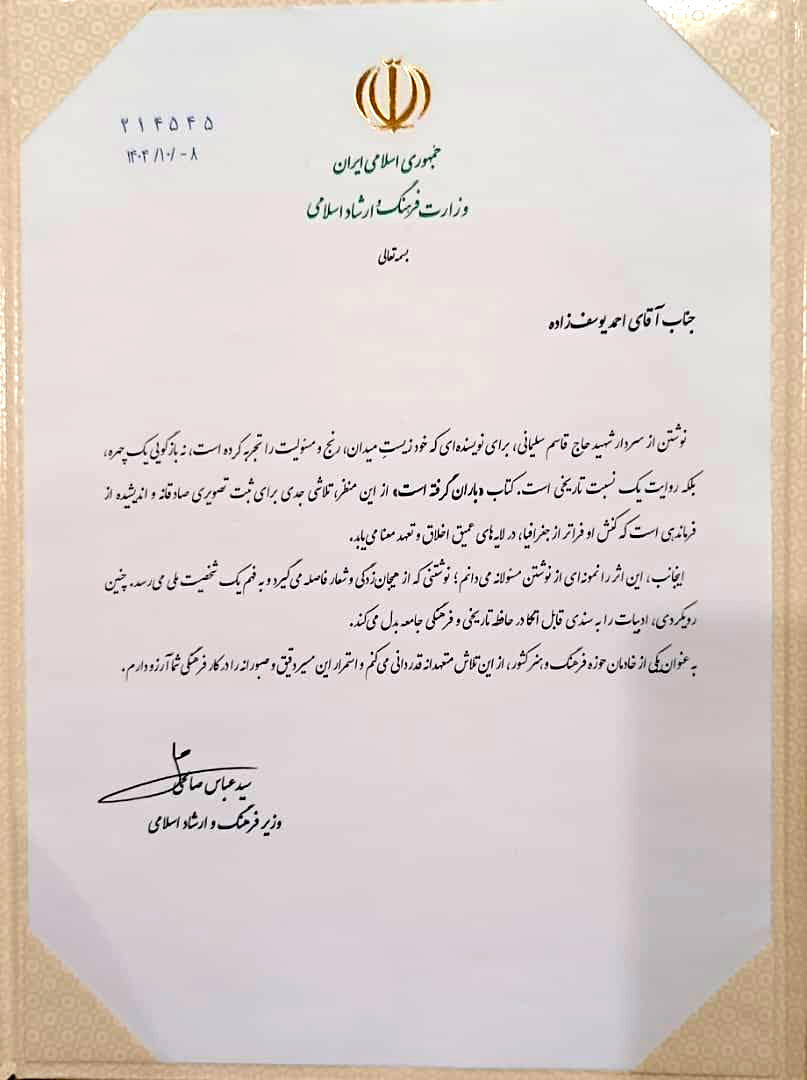 ۲۱۴۵۴۵
۱۴۰۴/۱۰/۰۸
جمهوری اسلامی ایران
وزارت فرهنگ و ارشاد اسلامی
بسمه تعالی
جناب آقای احمد یوسف‌زاده
نوشتن از سردار شهید حاج قاسم سلیمانی، برای نویسنده‌ای که خود زیستِ میدان، رنج و مسئولیت را تجربه کرده است، نه بازگویی یک چهره،
بلکه روایت یک نسبت تاریخی است. کتاب «باران گرفته است» از این منظر، تلاشی جدی برای ثبت تصویری صادقانه و اندیشیده از
فرماندهی است که کنش او فراتر از جغرافیا، در لایه‌های عمیق اخلاق و تعهد معنا می‌یابد.
اینجانب، این اثر را نمونه‌ای از نوشتن مسئولانه می‌دانم؛ نوشتنی که از هیجان‌زدگی و شعار فاصله می‌گیرد و به فهم یک شخصیت ملی می‌رسد. چنین
رویکردی، ادبیات را به سندی قابل اتکا در حافظه تاریخی و فرهنگی جامعه بدل می‌کند.
به عنوان یکی از خادمان حوزه فرهنگ و هنر کشور، از این تلاش متعهدانه قدردانی می‌کنم و استمرار این مسیر دقیق و صبورانه را در کار فرهنگی شما آرزو دارم.
سید عباس صالحی
وزیر فرهنگ و ارشاد اسلامی